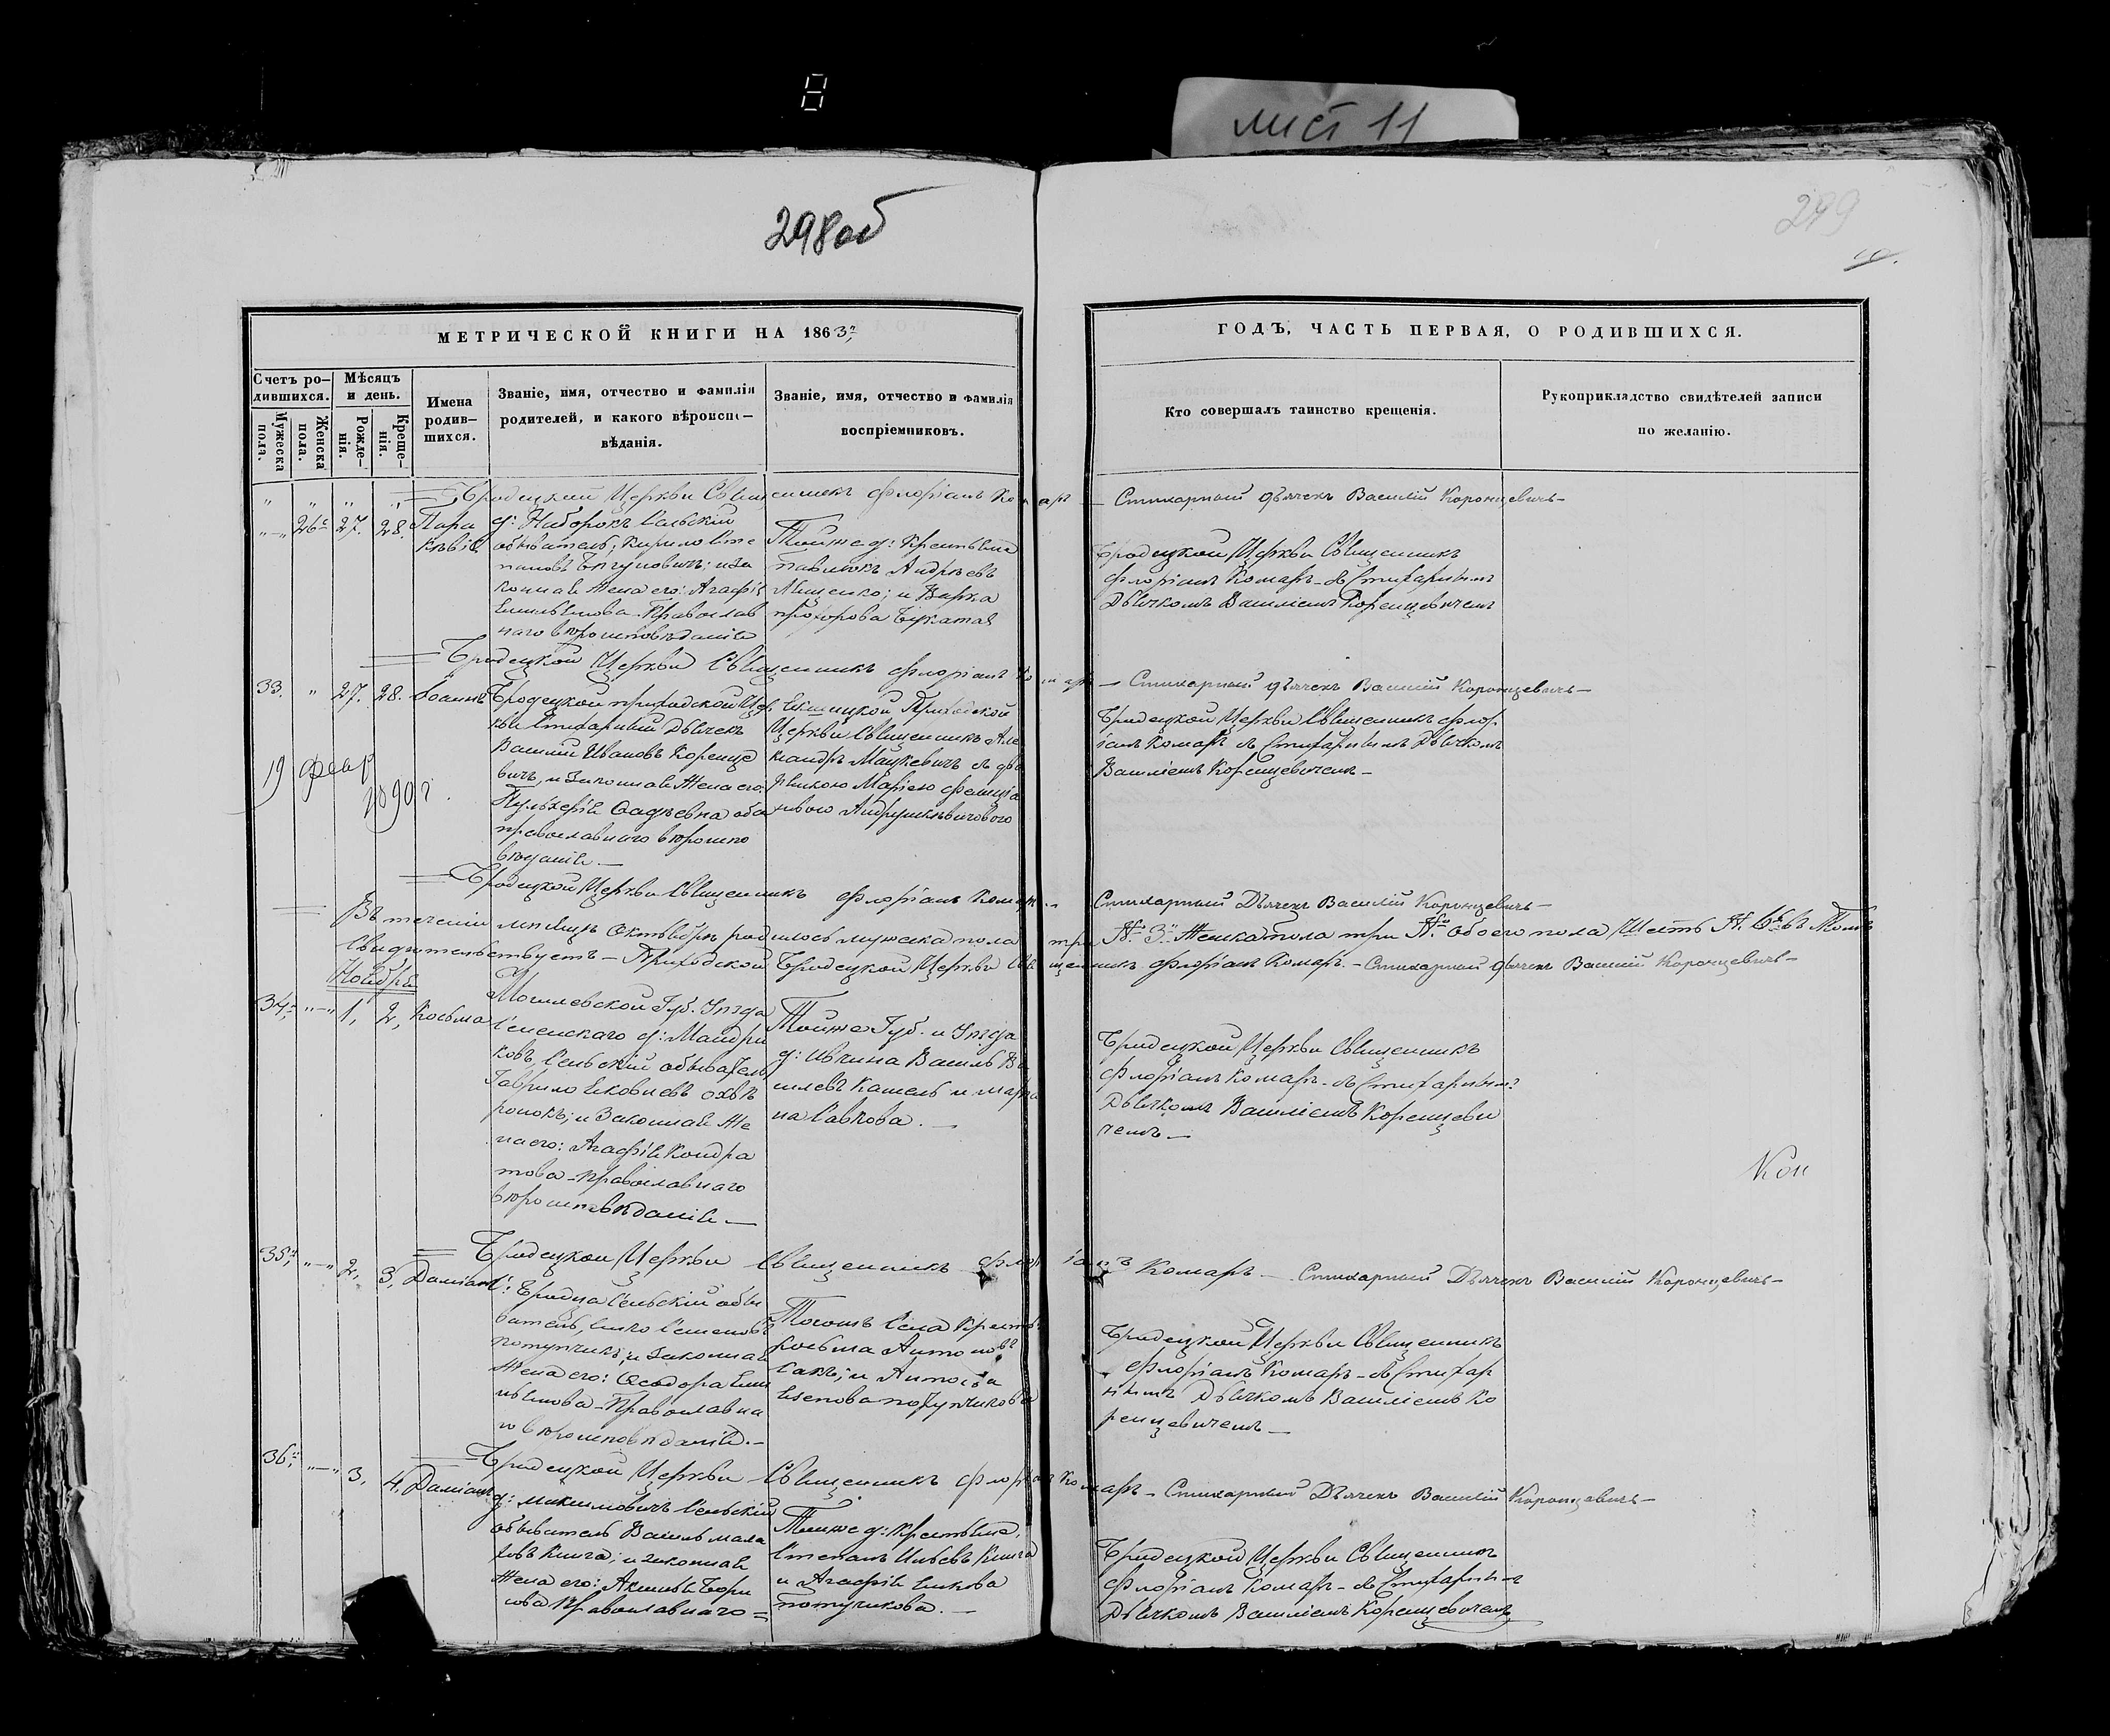 лист 11
298об
299
МЕТРИЧЕСКОЙ КНИГИ НА 1863
ГОДЪ, ЧАСТЬ ПЕРВАЯ, О РОДИВШИХСЯ.
Счетъ ро-
дившихся.
Мужеска
пола.
Женска
пола.
Мѣсяцъ
и день.
Рожде-
нія.
Креще-
нія.
Имена
родив-
шихся.
Званіе, имя, отчество и фамилія
родителей, и какого вѣроиспо-
вѣданія.
Званіе, имя, отчество и фамилія
воспріемниковъ.
Кто совершалъ таинство крещенія.
Рукоприкладство свидѣтелей записи
по желанію.
Бродецкой Церкви Священникъ Флоріанъ Комаръ — Стихарный дьячекъ Василій Коронцевичъ —
26 27. 28. Пара
кевія
Сельскій
обыватель, Кирило Сте
пановъ
конная жена его: Агафія
Емельянова Православ
наго вѣроисповѣданія
Тойже д: Крестьяне
Павлюкъ Андреевъ
и Варка
Прохорова
Бродецкой Церкви Священникъ
Флоріанъ Комаръ - съ Стихарнымъ
Дьячкомъ Василіемъ Коренцевичемъ
Бродецкой Церкви Священникъ Флоріанъ Комаръ — Стихарный дьячекъ Василій Коронцевичъ —
33. 27. 28. Іоаннъ
19 февр
1890 г.
Бродецкой приходской Цер
кви Стихарный Дьячекъ
Василій Ивановъ Коренце
вичъ, и Законная Жена его:
Пульхерія Фадѣевна оба
православнаго вѣроиспо
вѣданія. —
Приходской
Церкви Священникъ Але
ксандръ Мацкевичъ съ дво
рянкою Маріею
Бродецкой Церкви Священникъ Флор
іанъ Комаръ съ Стихарнымъ Дьячкомъ
Василіемъ Коренцевичемъ —
Бродецкой Церкви Священникъ Флоріанъ Комаръ — Стихарный Дьячекъ Василій Коронцевичъ —
Въ теченіи мѣсяца Октября родилось мужеска пола три № 3 Женска пола три № обоего пола Шесть № 6 въ томъ
Свидѣтельствуетъ — Приходской Бродецкой Церкви Священникъ Флоріанъ Комаръ. — Стихарный дьячекъ Василій Коронцевичъ —
Ноября
34 1, 2, Косьма
Могилевской Губ. Уѣзда
Сененскаго д: Мандри
ковъ, Сельскій обыватель
Гаврило
и Законная Же
на его: Агафія Кондра
това - православнаго
вѣроисповѣданія —
Тойже Губ. и Уѣзда
д: Василь Ва
силевъ и Мари
на Савкова. —
Бродецкой Церкви Священникъ
Флоріанъ Комаръ - съ Стихарнымъ
Дьячкомъ Василіемъ Коренцеви
чемъ —
Кон
Бродецкой Церкви Священникъ Флоріанъ Комаръ — Стихарный Дьячекъ Василій Коронцевичъ —
35 2, 3, Даміанъ
С: Бродца Сельскій обы
ватель, Семеновъ
и Законная
Жена его: Ѳеодора Еме
льянова - Православна
го вѣроисповѣданія. —
Тогожъ Села Крестья
Косьма Антоновъ
и
Бродецкой Церкви Священникъ
Флоріанъ Комаръ - съ Стихар
нымъ Дьячкомъ Василіемъ Ко
ренцевичемъ —
Бродецкой Церкви Священникъ Флоріанъ Комаръ — Стихарный Дьячекъ Василій Коронцевичъ —
36 3, 4, Даміанъ
д: Максимовичъ Сельскій
обыватель Василь
Книга; и законная
Жена его: Аксинья Бори
сова Православнаго =
Тойже д: Крестьяне,
Степанъ Ильевъ Книга
и Агафія
Бродецкой Церкви Священникъ
Флоріанъ Комаръ - съ Стихарнымъ
Дьячкомъ Василіемъ Коренцевичемъ